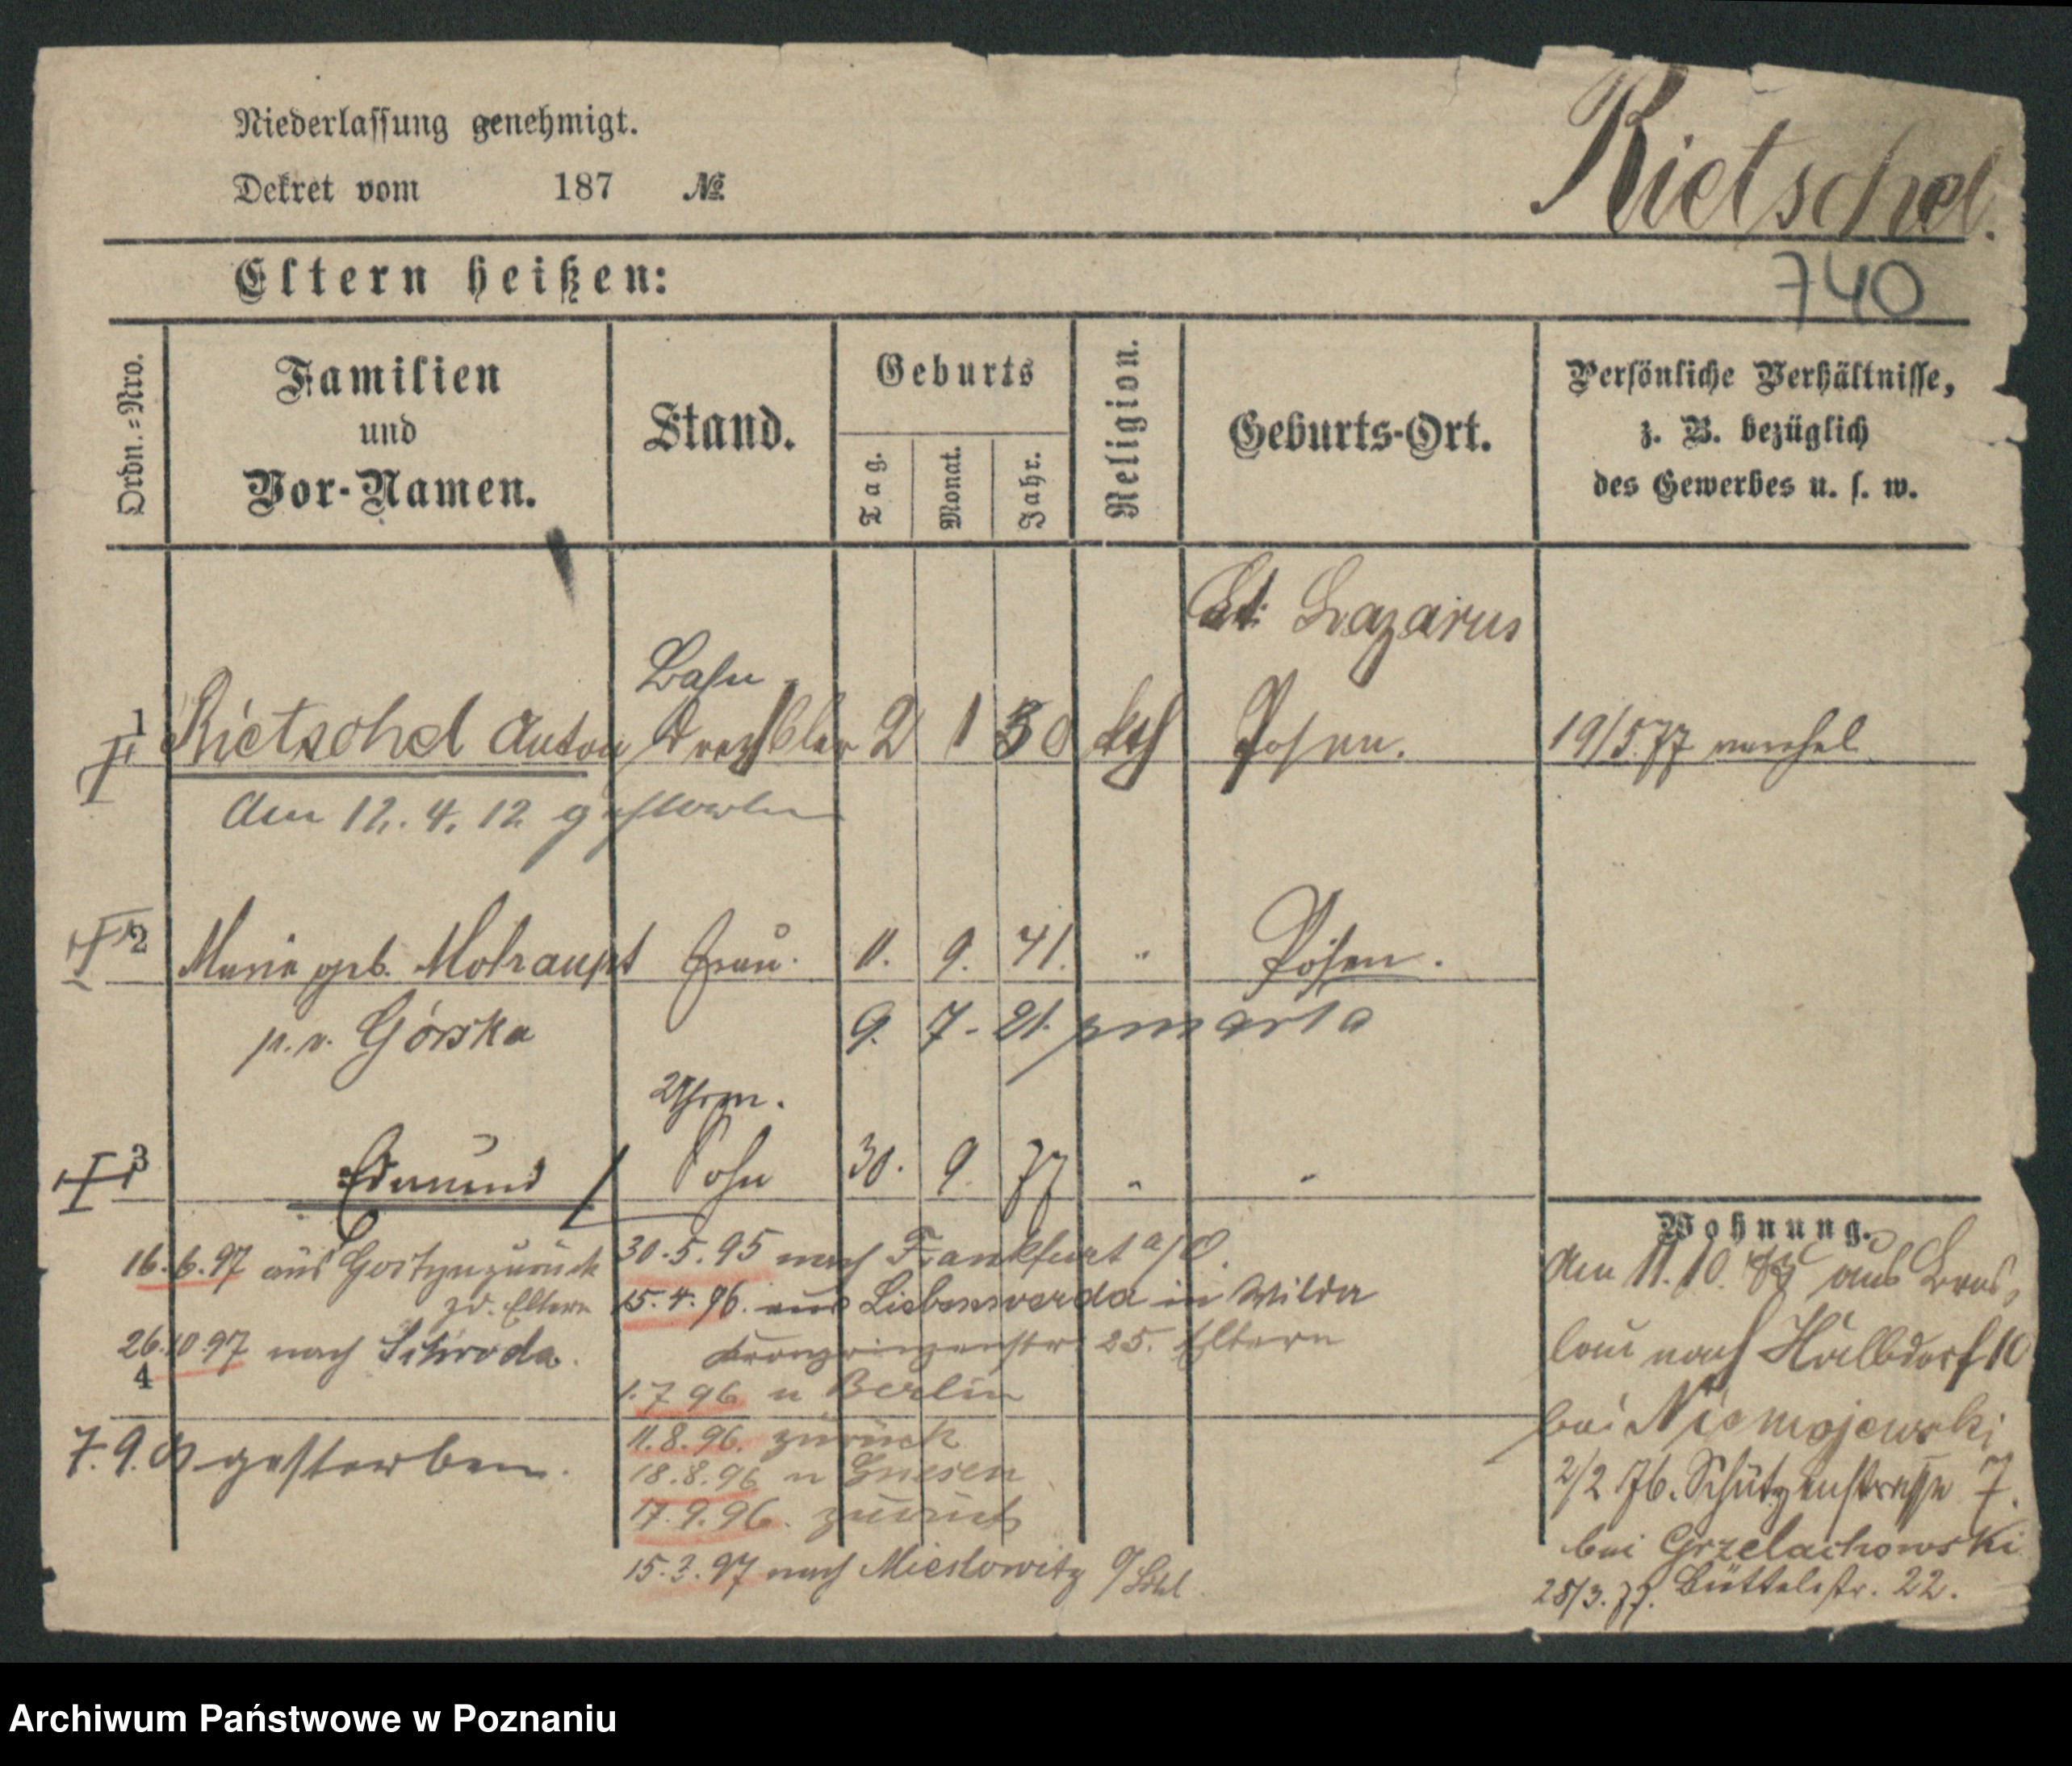 Niederlassung genehmigt.
Dekret vom 187 №
Rietschel.
Eltern heißen:
740
Ordn.=Nro.
Familien
und
Vor-Namen.
Stand.
Geburts
Tag.
Monat.
Jahr.
Religion.
Geburts-Ort.
Persönliche Verhältnisse,
z. B. bezüglich
des Gewerbes u. s. w.
St. Lazarus
Bahn
1 Rietschel Anton 2 1 30 kth Posen. 19/5.77
Am 12. 4. 12 gestorben
2 Marie geb. Molraupt Frau. 11. 9. 41. " Posen.
p. v. Górska 9. 7. 21. zmarła
Uhrm.
3 Edmund Sohn 30. 9. 77 " "
Wohnung.
16.6.97 aus Gostyn zurück
zd. Eltern
26.10.97 nach Schroda.
4
7.9. gestorben.
30.5.95 nach Frankfurt a/O.
15.4.96. aus Liebenwerda in Wilda
Kronprinzenstr. 25. Eltern
1.7 96 n Berlin
11.8.96. zurück
18.8.96 n Gnesen
17.9.96. zurück
15.3.97 nach Mieslowitz O/Schl.
Am 11.10. aus Bres,
lau nach Halbdorf 10
bei Niemojewski
2/2 76. Schützenstrasse 7.
bei Grzelachowski
28/3. 77. Büttelstr. 22.
Archiwum Państwowe w Poznaniu